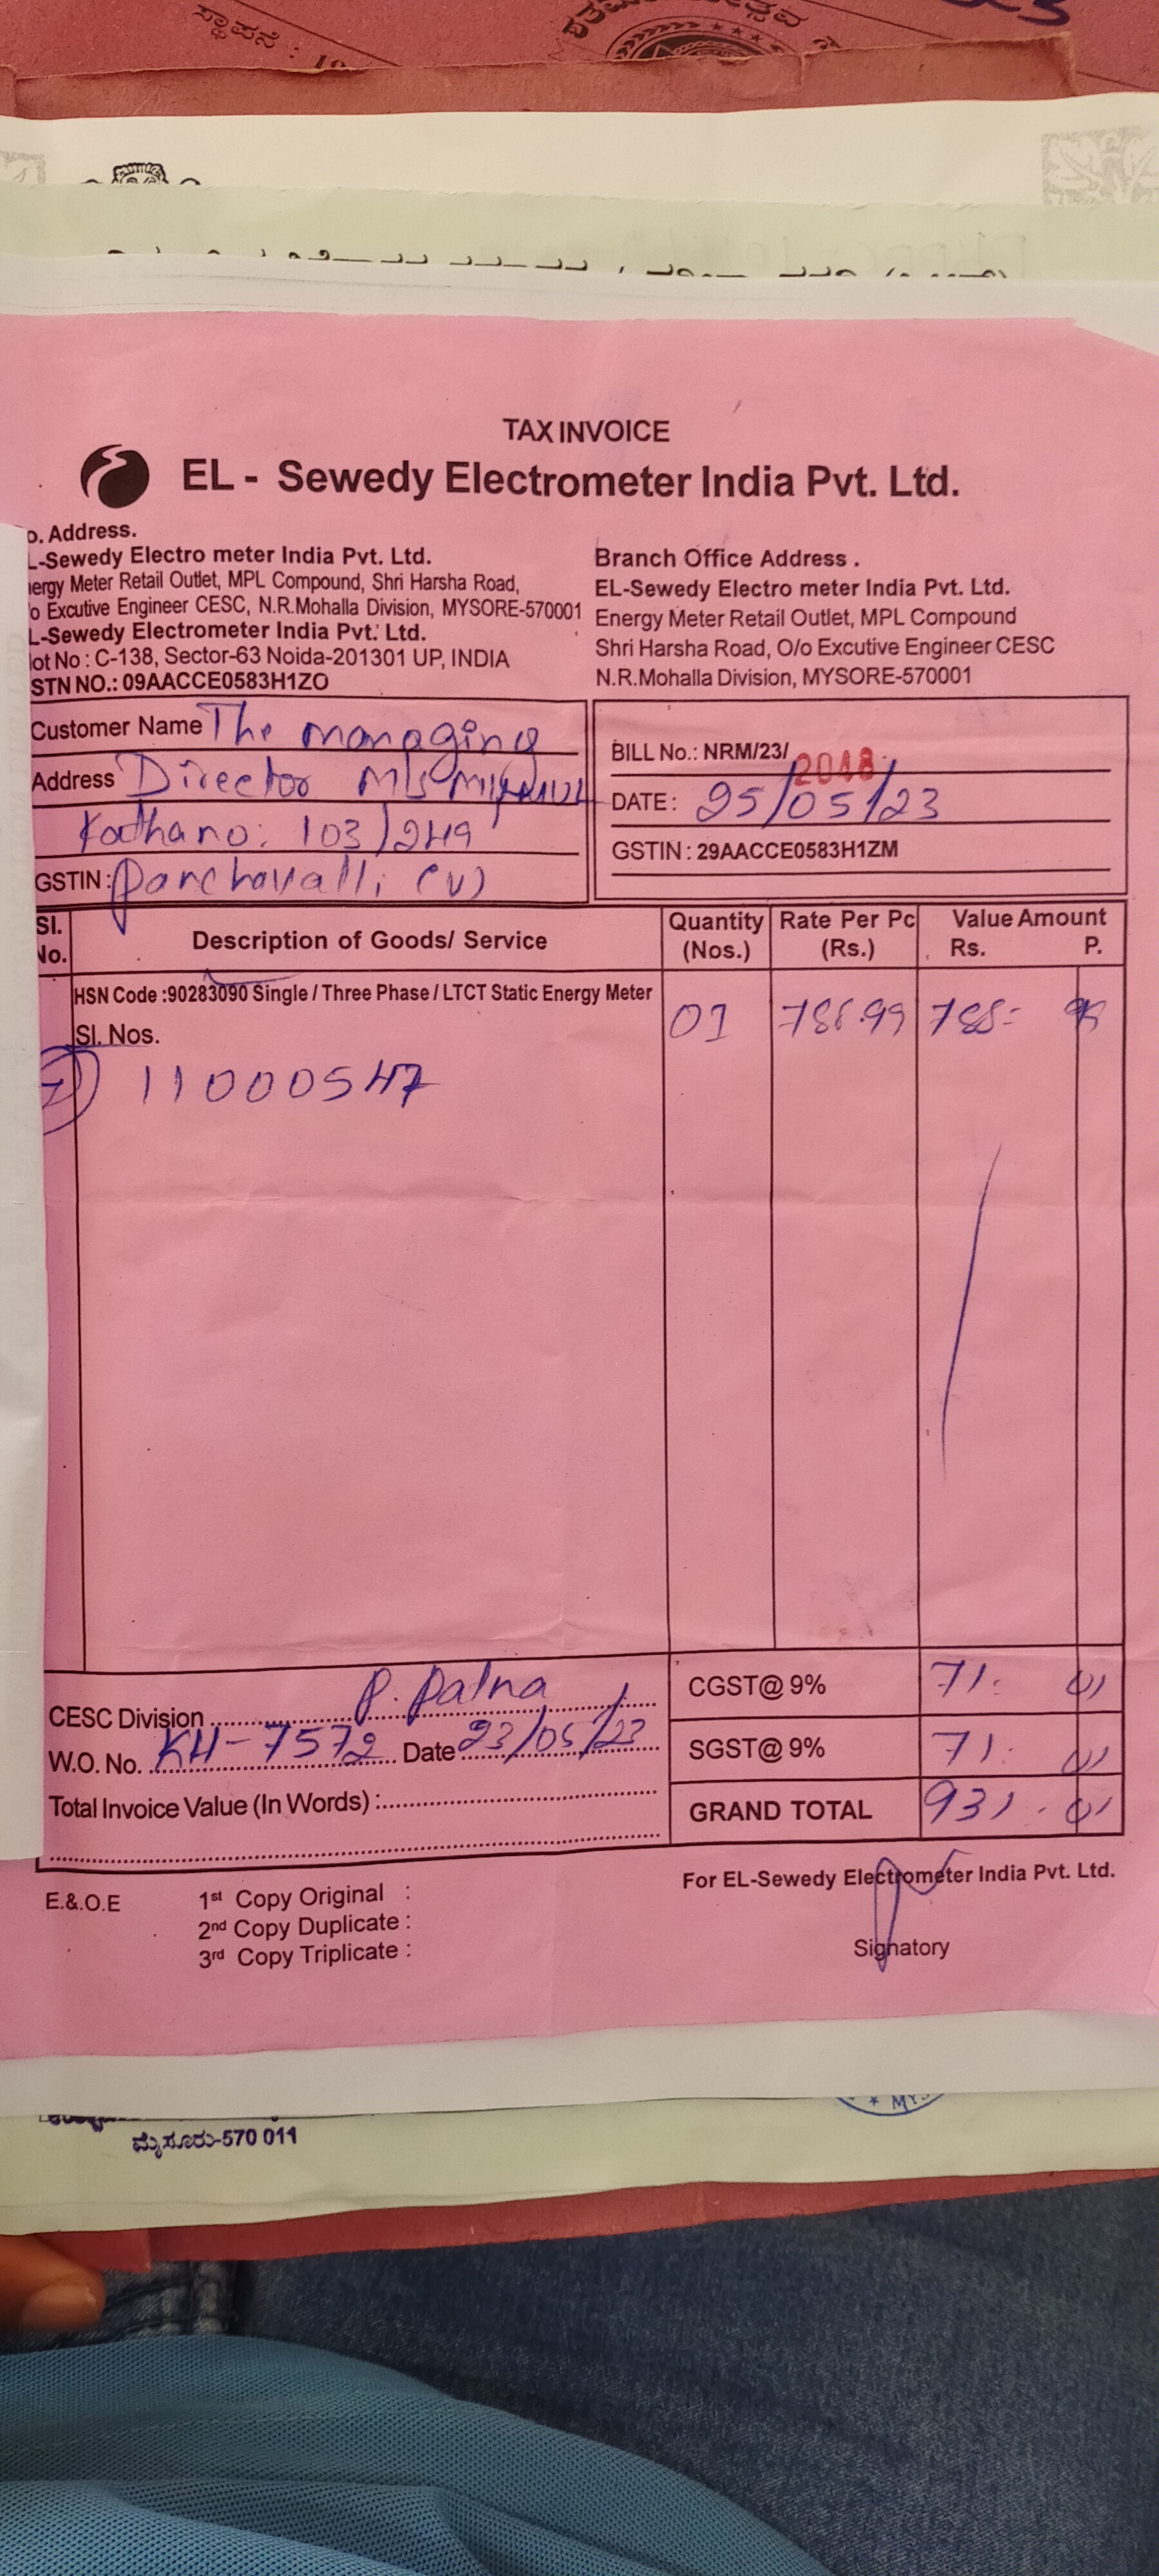 ಸ್ಥಾಪನೆ : 19
TAX INVOICE
EL - Sewedy Electrometer India Pvt. Ltd.
o. Address.
L-Sewedy Electro meter India Pvt. Ltd.
ergy Meter Retail Outlet, MPL Compound, Shri Harsha Road,
o Excutive Engineer CESC, N.R.Mohalla Division, MYSORE-570001
L-Sewedy Electrometer India Pvt. Ltd.
lot No : C-138, Sector-63 Noida-201301 UP, INDIA
STN NO.: 09AACCE0583H1ZO
Branch Office Address .
EL-Sewedy Electro meter India Pvt. Ltd.
Energy Meter Retail Outlet, MPL Compound
Shri Harsha Road, O/o Excutive Engineer CESC
N.R.Mohalla Division, MYSORE-570001
Customer Name The managing
Address Director M/s
Kathano: 103/249
GSTIN : Panchavalli (V)
BILL No.: NRM/23/ 2048
DATE : 25/05/23
GSTIN : 29AACCE0583H1ZM
Sl. No. Description of Goods/ Service Quantity (Nos.) Rate Per Pc (Rs.) Value Amount Rs. P.
HSN Code :90283090 Single / Three Phase / LTCT Static Energy Meter
Sl. Nos.
01 788.99 788= 99
11000547
CESC Division P. Patna
W.O. No. KH-7572 Date 23/05/23
Total Invoice Value (In Words) :
CGST@ 9% 71. 01
SGST@ 9% 71. 01
GRAND TOTAL 931. 01
For EL-Sewedy Electrometer India Pvt. Ltd.
Signatory
E.&.O.E
1st Copy Original :
2nd Copy Duplicate :
3rd Copy Triplicate :
ಮೈಸೂರು-570 011